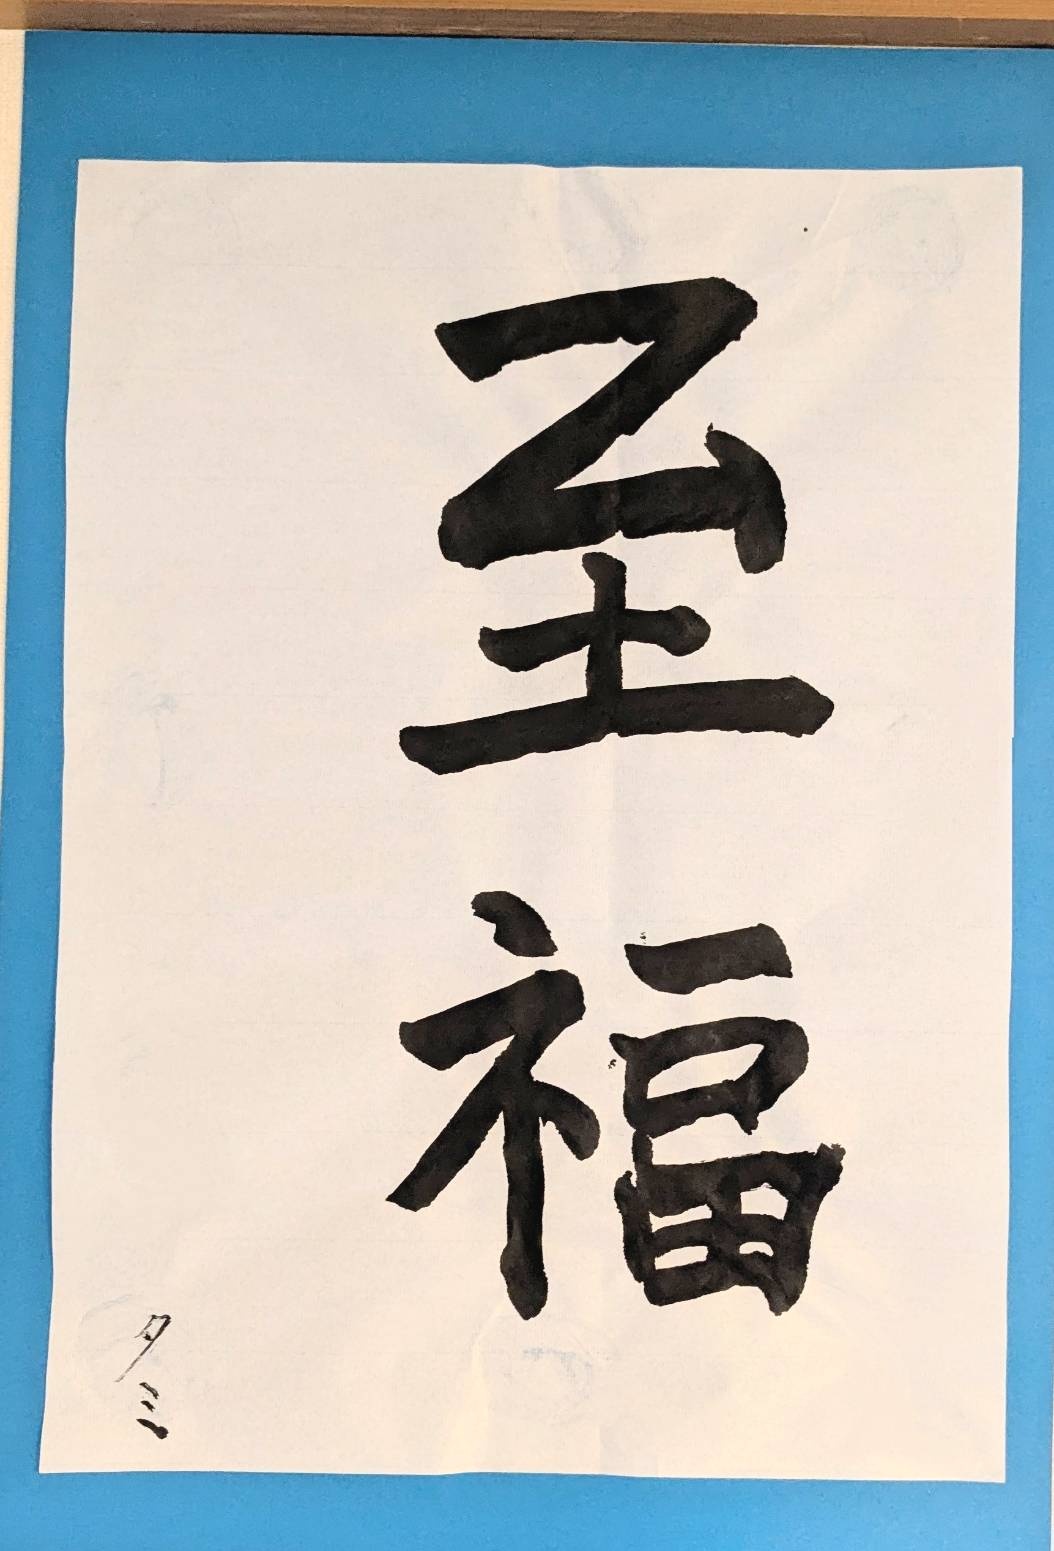 至福
タミ